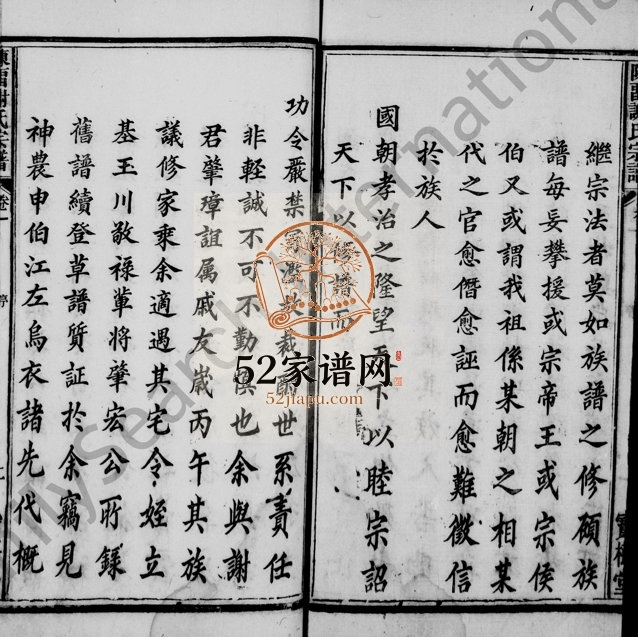 繼宗法者莫如族譜之修頋族
譜每妄攀援或宗帝王或宗侯
伯又或謂我祖係某朝之相某
代之官愈僭愈誣而愈難徵信
於族人
國朝孝治之隆望天下以睦宗詔
天下以修譜而
功令嚴禁濫裁世系責任
非輕誠不可不勤慎也余與謝
君肇璋誼属戚友嵗丙午其族
議修家乘余適遇其宅令姪立
基王川敬祿輩將肇宏公所錄
舊譜續登草譜質証於余竊見
神農申伯江左烏衣諸先代概
陳留謝氏宗譜
卷一
序
52家谱网
52jiapu.com
MySearch International